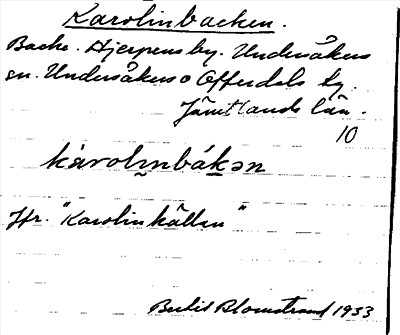 Karolinbacken.
Backe. Hjerpens by. Undersåkers
sn. Undersåkers o Offerdals tg.
Jämtlands län.
10
kàrolınbákən
Jfr. "Karolinkällan"
Berit Blomstrand 1933